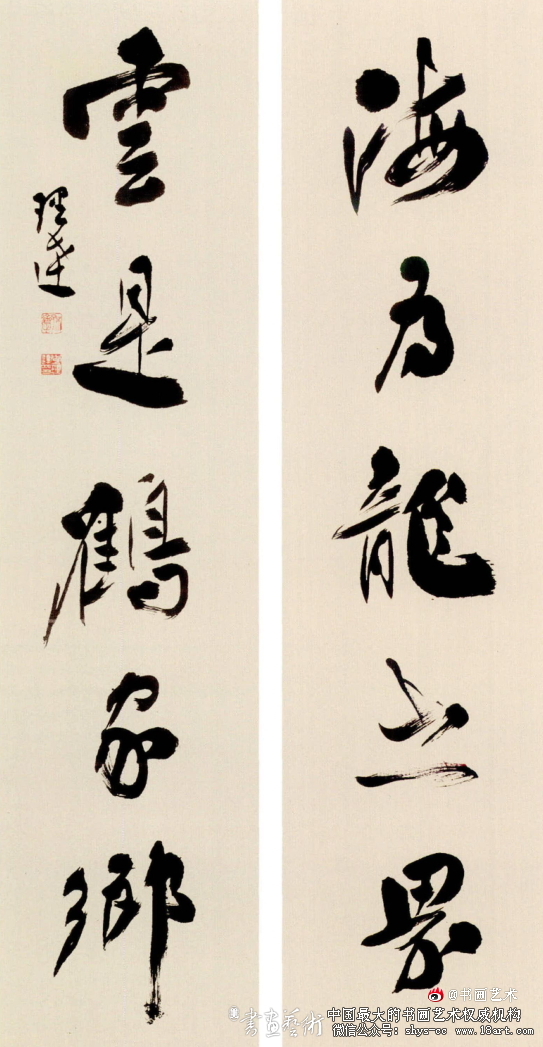 海為龍世界
雲是鶴家鄉
@书画艺术
書畫藝術
中国最大的书画艺术权威机构
微信公众号: shys-cc www.18art.com